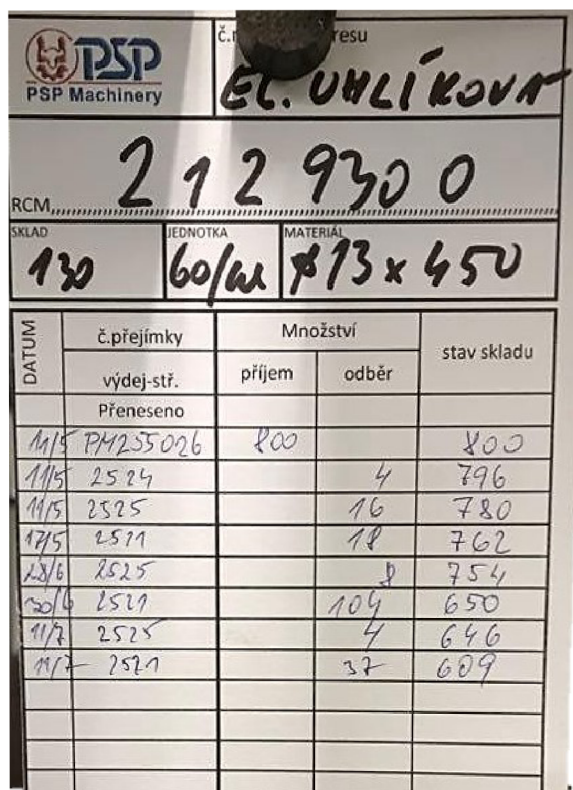 PSP
PSP Machinery
resu
EL. UHLÍKOVÁ
RCM 2129300
SKLAD JEDNOTKA MATERIÁL
130 ø13 x 450
DATUM č.přejímky Množství stav skladu
výdej-stř. příjem odběr
Přeneseno
11/5 PM255026 800 800
11/5 2524 4 796
11/5 2525 16 780
17/5 2521 18 762
28/6 2525 8 754
30/6 2521 104 650
11/7 2525 4 646
11/7 2521 37 609